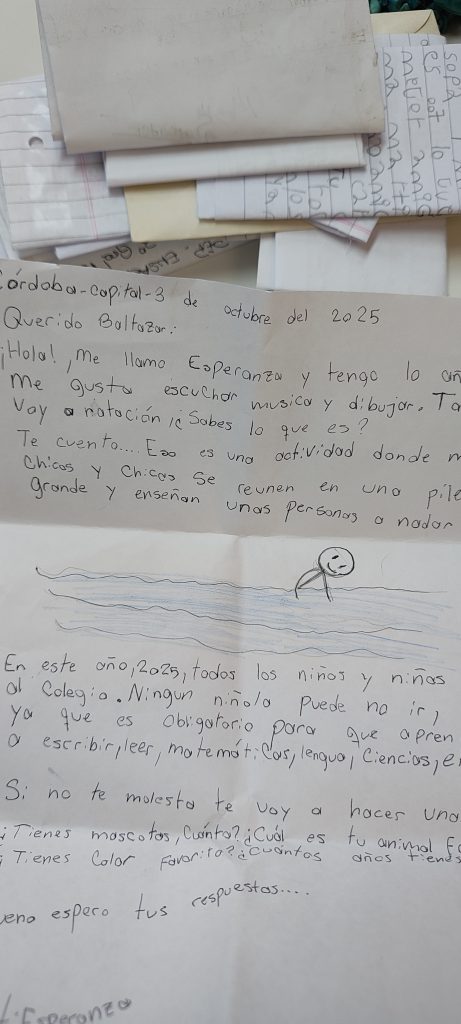 sopa
es lo
meter
Córdoba-capital-3 de octubre del 2025
Querido Baltazar:
¡Hola!, Me llamo Esperanza y tengo 10 añ
Me gusta escuchar musica y dibujar. Ta
Voy a natación, ¿Sabes lo que es?
Te cuento.... Eso es una actividad donde m
Chicos y Chicas se reunen en una pile
grande y enseñan unas personas a nadar
En este año, 2025, todos los niños y niñas
al Colegio. Ningun niño/a puede no ir,
ya que es obligatorio para que apren
a escribir, leer, matemáticas, lengua, Ciencias, e
Si no te molesta te voy a hacer una
¿Tienes mascotas, Cuánto? ¿Cuál es tu animal fa
¿Tienes Color favorito? ¿Cuántos años tienes
ueno espero tus respuestas....
Esperanza